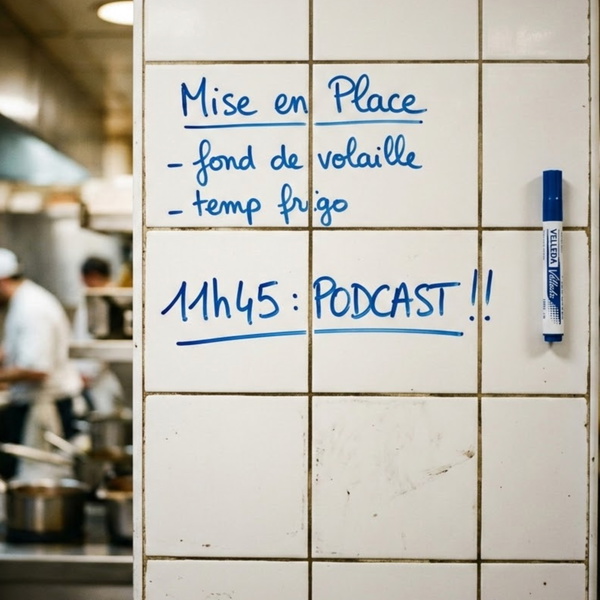 Mise en Place
- fond de volaille
- temp frigo
11h45 : PODCAST !!
VELLEDA
Velleda